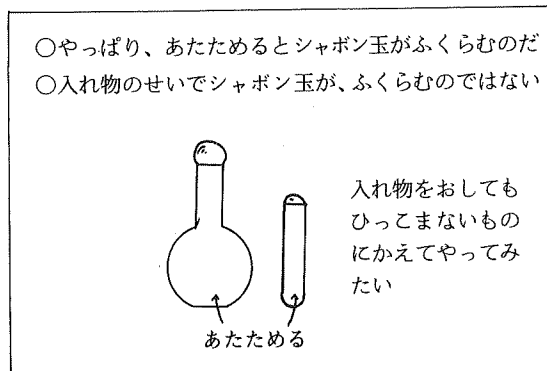 ○やっぱり、あたためるとシャボン玉がふくらむのだ
○入れ物のせいでシャボン玉が、ふくらむのではない
入れ物をおしても
ひっこまないもの
にかえてやってみ
たい
あたためる